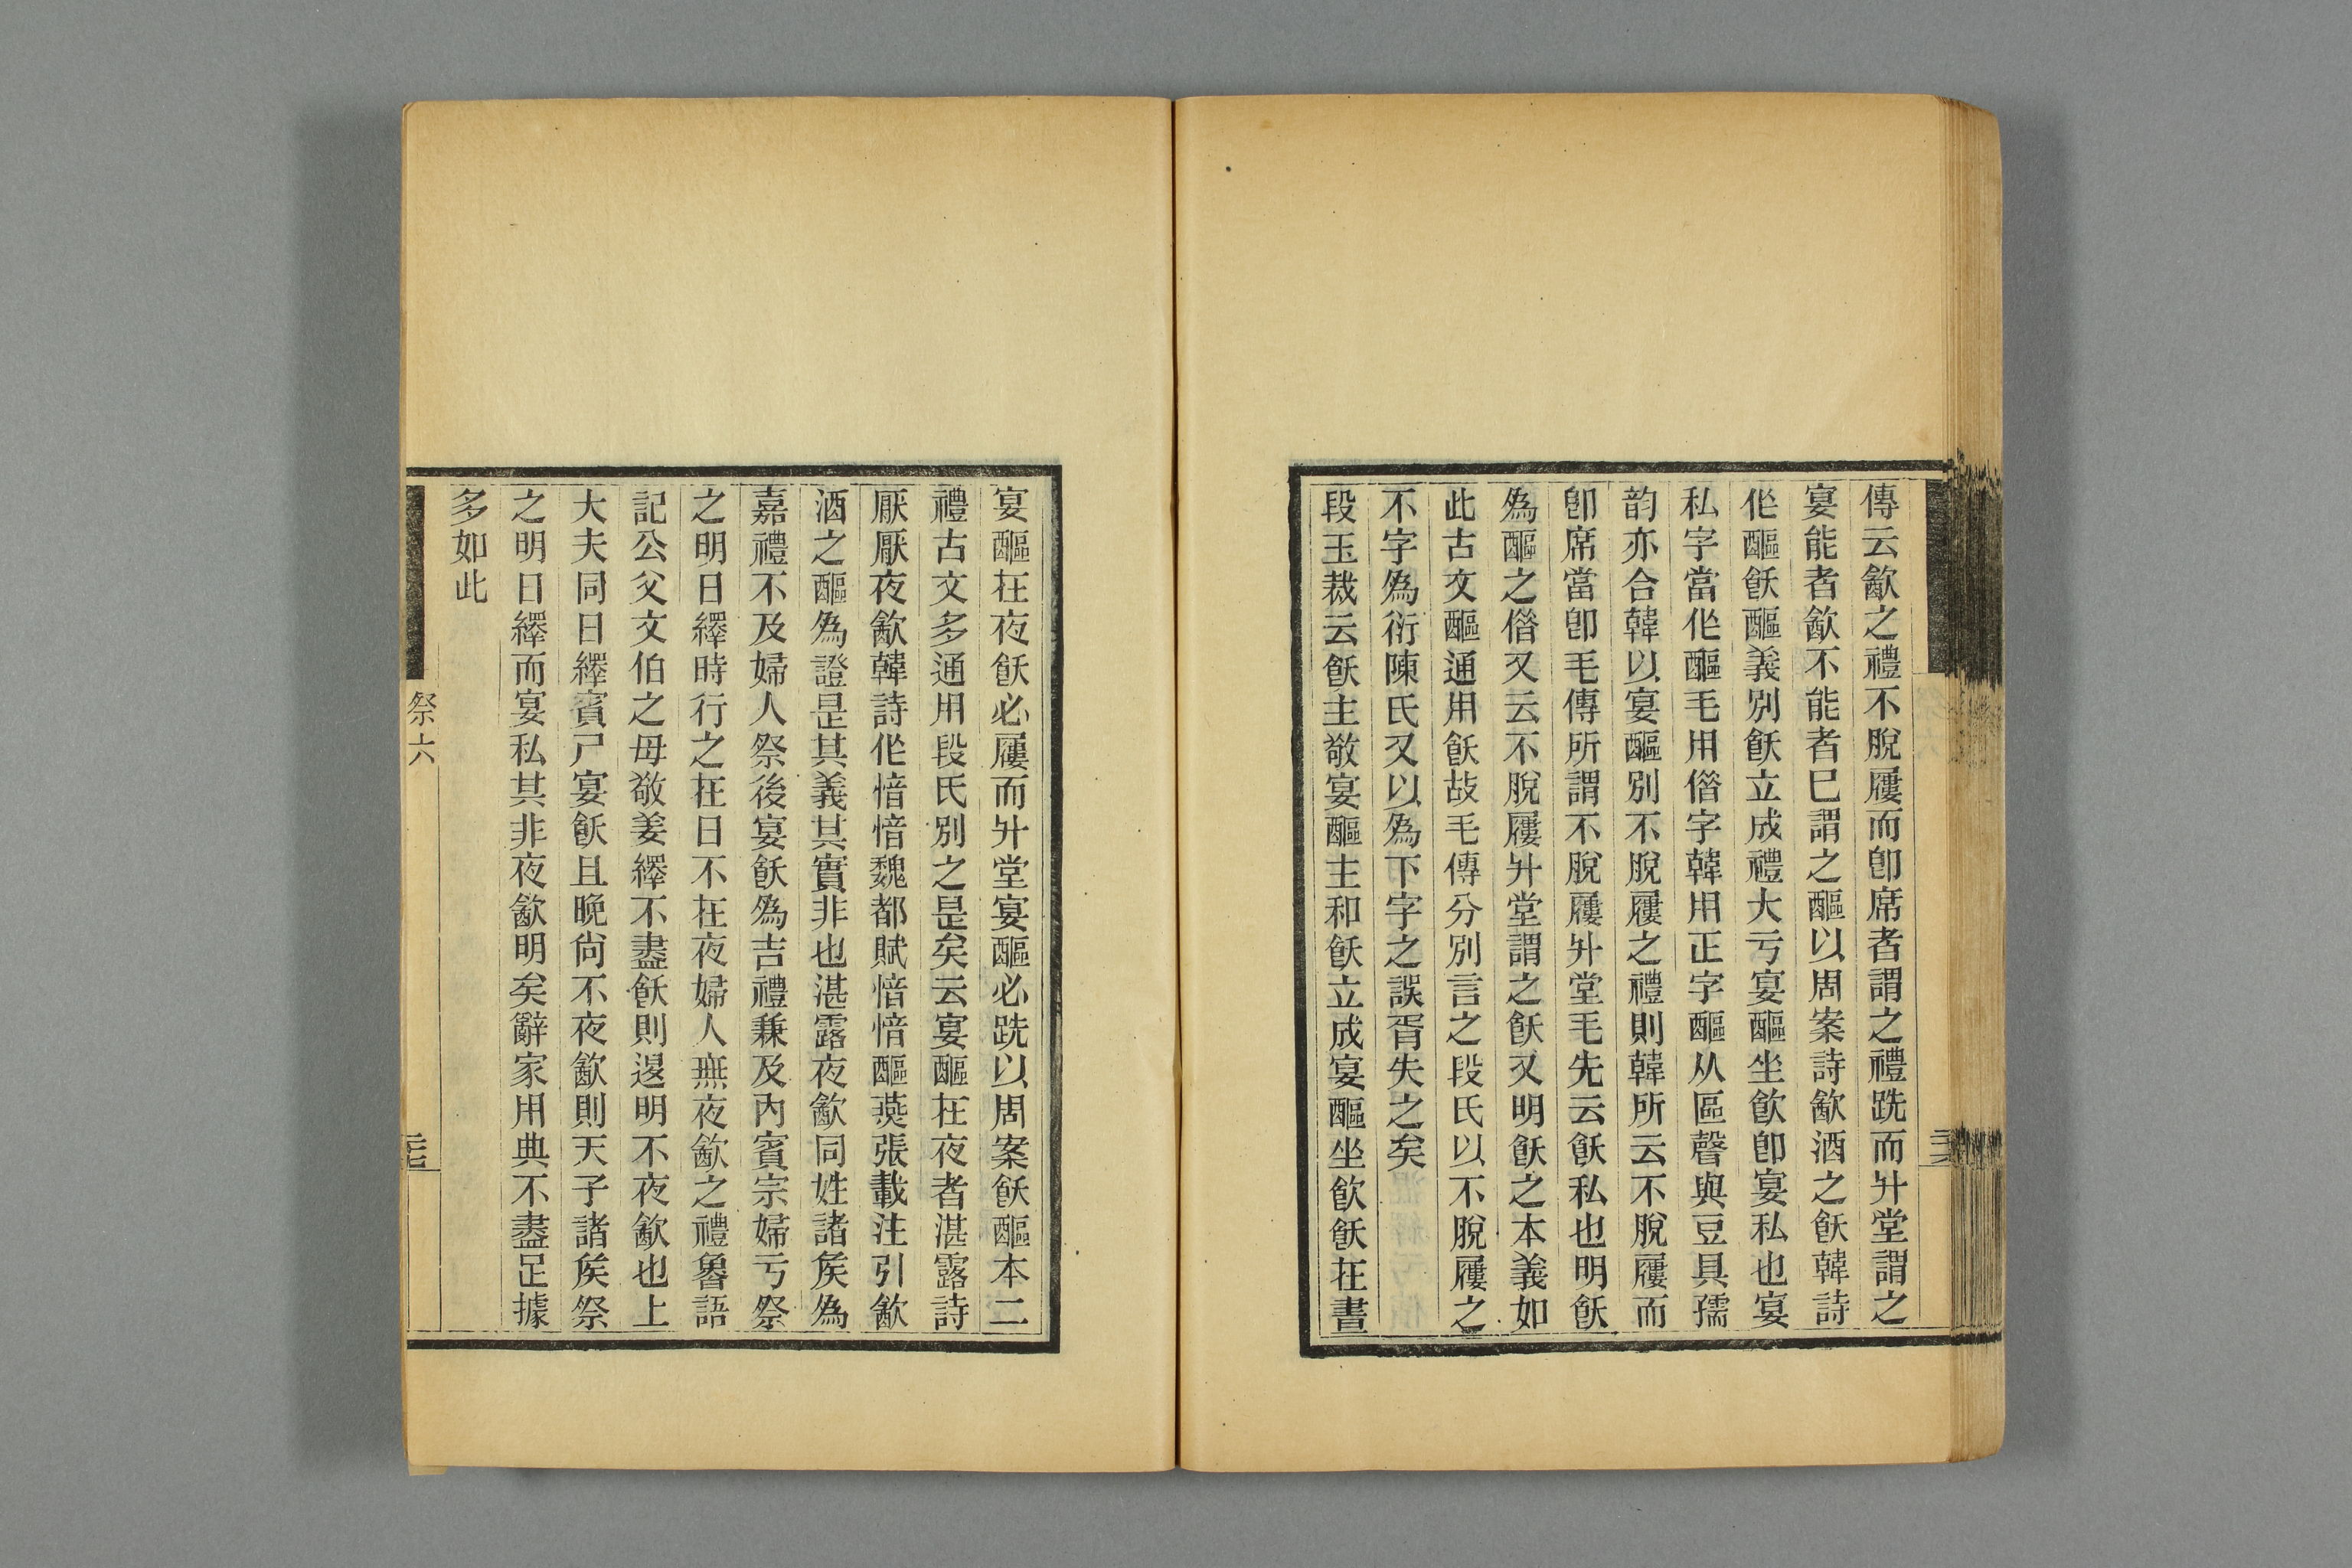 傳云歙之禮不脫屨而卽席者謂之禮跣而升堂謂之
宴能者歙不能者已謂之醧以周案詩歙酒之飫韓詩
作醧飫醧義別飫立成禮大亏宴醧坐飮卽宴私也宴
私字當作醧毛用偺字韓用正字醧从區聲與豆具孺
韵亦合韓以宴醧別不脫屨之禮則韓所云不脫屨而
卽席當卽毛傳所謂不脫屨升堂毛先云飫私也明飫
爲醧之偺又云不脫屨升堂謂之飫又明飫之本義如
此古文醧通用飫故毛傳分別言之段氏以不脫屨之
不字爲衍陳氏又以爲下字之誤胥失之矣
段玉裁云飫主敬宴醧主和飫立成宴醧坐飮飫在晝
宴醧在夜飫必屨而升堂宴醧必跣以周案飫醧本二
禮古文多通用段氏別之是矣云宴醧在夜者湛露詩
厭厭夜歙韓詩作愔愔魏都賦愔愔醧燕張載注引歙
酒之醧爲證是其義其實非也湛露夜歙同姓諸矦爲
嘉禮不及婦人祭後宴飫爲吉禮兼及內賓宗婦亏祭
之明日繹時行之在日不在夜婦人無夜歙之禮魯語
記公父文伯之母敬姜繹不盡飫則退明不夜歙也上
大夫同日繹賓尸宴飫且晚尙不夜歙則天子諸矦祭
之明日繹而宴私其非夜歙明矣辭家用典不盡足據
多如此
祭六